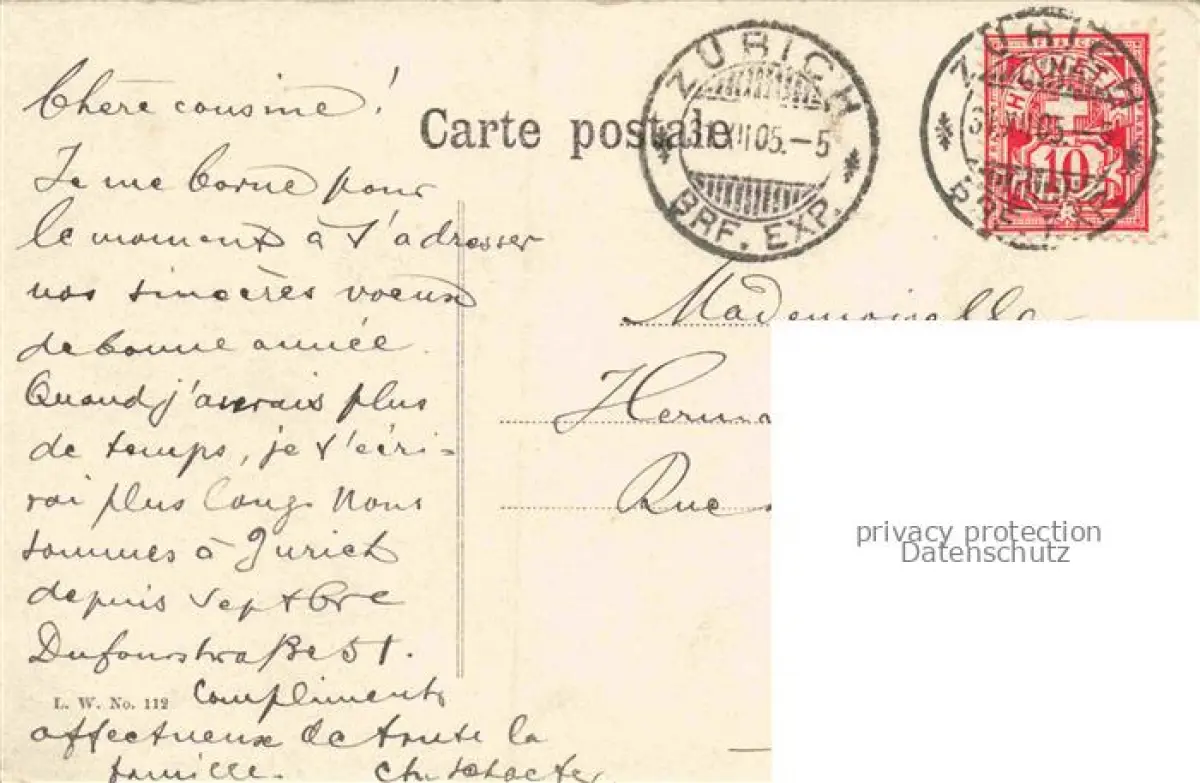 Chère cousine !
Je me borne pour
le moment à t'adresser
nos sincères voeux
de bonne année.
Quand j'aurais plus
de temps, je t'écri-
rai plus long. Nous
sommes à Zurich
depuis Septbre
Dufourstraße 51.
Compliments
affectueux de toute la
famille.
L. W. No. 112
Carte postale
ZÜRICH
31.XII.05.–5
BRF. EXP.
ZÜRICH
31.XII.05.–5
BRF. EXP.
HELVETIA
10
Mademoiselle
Herm
Rue
privacy protection
Datenschutz